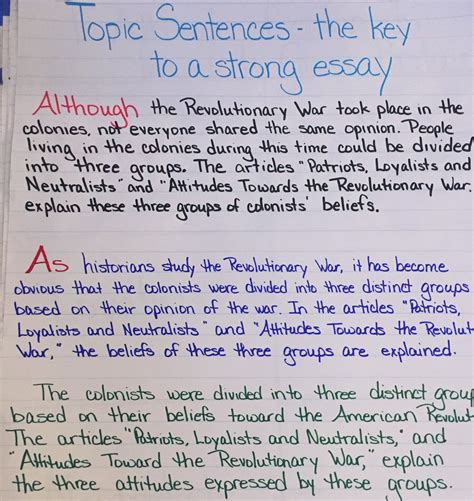 Topic Sentences - the key
to a strong essay
Although the Revolutionary War took place in the
colonies, not everyone shared the same opinion. People
living in the colonies during this time could be divided
into three groups. The articles "Patriots, Loyalists and
Neutralists" and "Attitudes Towards the Revolutionary War,
explain these three groups of colonists' beliefs.
As historians study the Revolutionary War, it has become
obvious that the colonists were divided into three distinct groups
based on their opinion of the war. In the articles "Patriots,
Loyalists and Neutralists" and "Attitudes Towards the Revolut
War," the beliefs of these three groups are explained.
The colonists were divided into three distinct group
based on their beliefs toward the American Revolut
The articles "Patriots, Loyalists and Neutralists," and
"Attitudes Toward the Revolutionary War," explain
the three attitudes expressed by these groups.